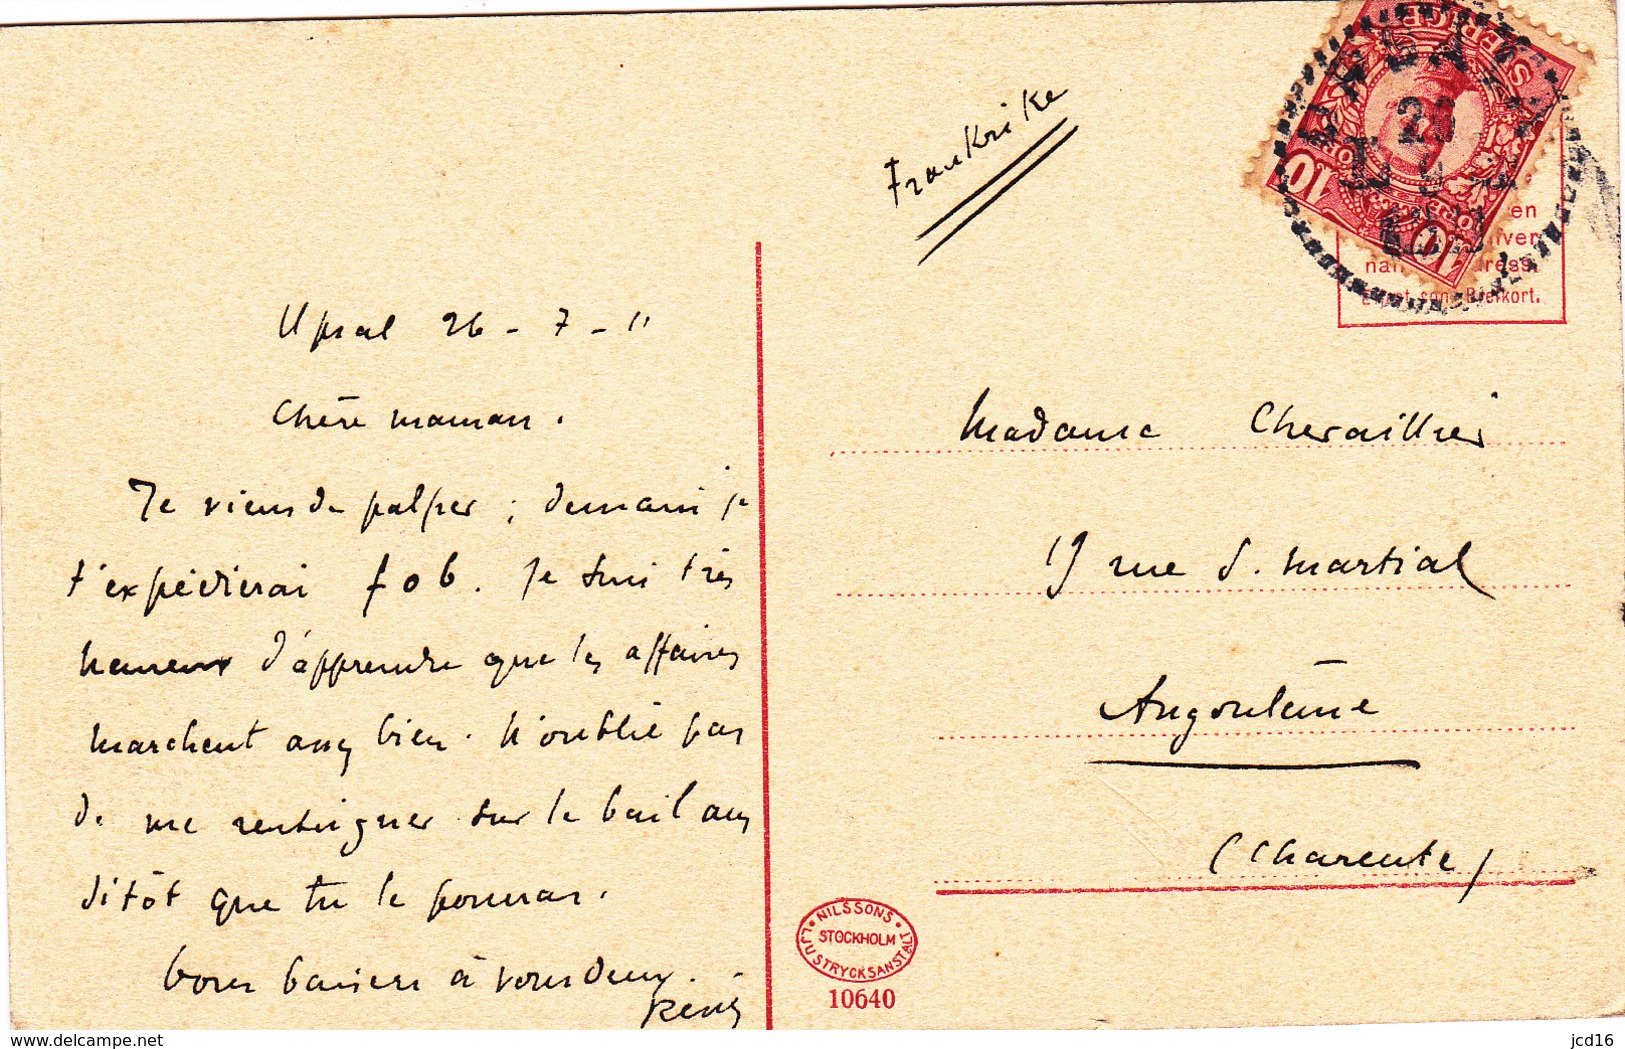 Frankrike
SVERIGE
10
10
26
en
iver
ress.
Brefkort.
Upsal 26 - 7 - 11
Chère maman.
Je viens de palper ; demain je
t'expédierai fob. Je suis très
heureux d'apprendre que les affaires
marchent assez bien. N'oublie pas
de me renseigner sur le bail aus
sitôt que tu le pourras.
bons baisers à vous deux.
René
Madame Chevaillier
19 rue S. Martial
Angoulême
(Charente)
NILSSONS
STOCKHOLM
LJUSTRYCKSANSTALT
10640
delcampe.net
jcd16